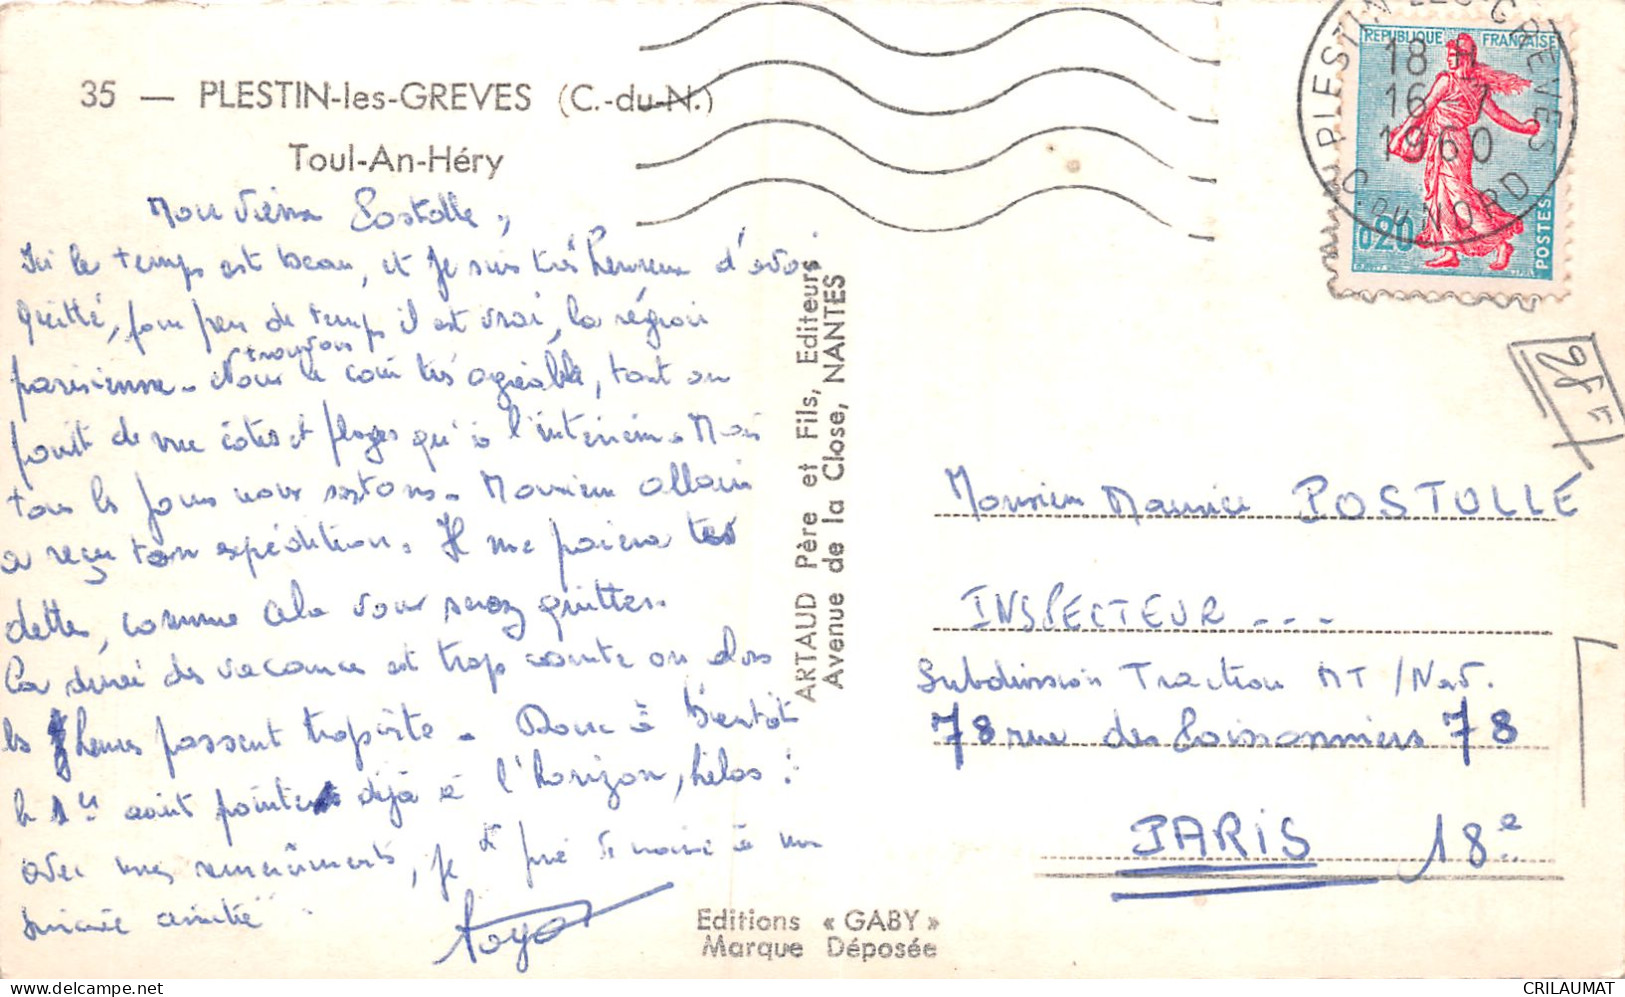 35 — PLESTIN-les-GREVES (C.-du-N.)
Toul-An-Héry
Mon Vieux Postolle,
Ici le temps est beau, et je suis très heureux d'avoir
quitté, pour peu de temps il est vrai, la région
parisienne. Nous trouvons le coin très agréable, tant au
point de vue côtes et plages qu'à l'intérieur. Mais
tous les jours nous sortons. Monsieur Allain
a reçu ton expédition. Il me paiera tes
dettes, comme cela vous serez quittes.
La durée des vacances est trop courte ou alors
les heures passent trop vite. Donc à bientôt
le 1er août pointe déjà à l'horizon, hélas!
avec mes remerciements, je te prie de croire à ma
sincère amitié
ARTAUD Père et Fils, Editeurs
Avenue de la Close, NANTES
Editions « GABY »
Marque Déposée
PLESTIN-LES-GREVES
18 H
16 - 7
1960
C. DU NORD
REPUBLIQUE FRANÇAISE
0,20
POSTES
2F
Monsieur Maurice POSTOLLE
INSPECTEUR ---
Subdivision Traction MT/Nord.
78 rue des Poissonniers 78
PARIS 18e
CRILAUMAT